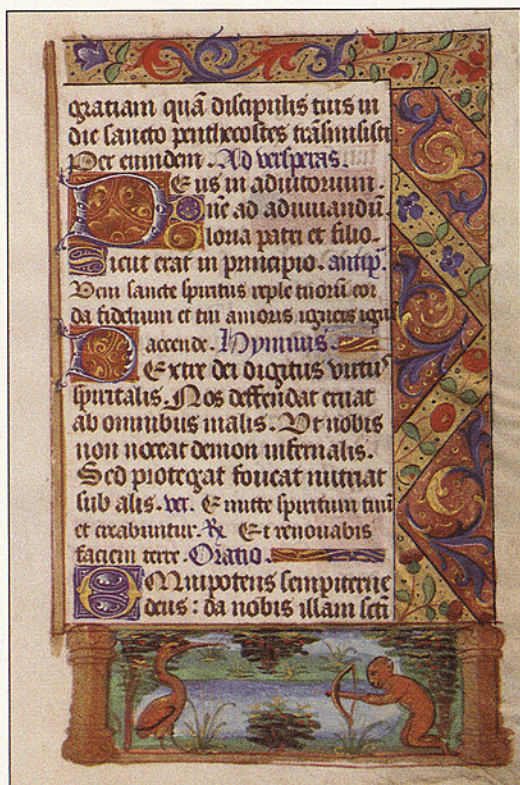 gratiam quā discipulis tuis in
die sancto penthecostes trāsmisisti
Per eiundem. Ad vesperas.
Deus in adiutorium.
Dñe ad adiuuandū
Gloria patri et filio.
Sicut erat in principio. antiph.
Veni sancte spiritus reple tuorū cor
da fidelium et tui amoris igneis ignē
accende. Hymnus.
Dextre dei digitus virtus
spiritalis. Nos deffendat eruat
ab omnibus malis. Vt nobis
non noceat demon infernalis.
Sed protegat foueat nutriat
sub alis. ver. Emitte spiritum tuū
et creabuntur. ℟ Et renouabis
faciem terre. Oratio.
OMnipotens sempiterne
deus: da nobis illam scti